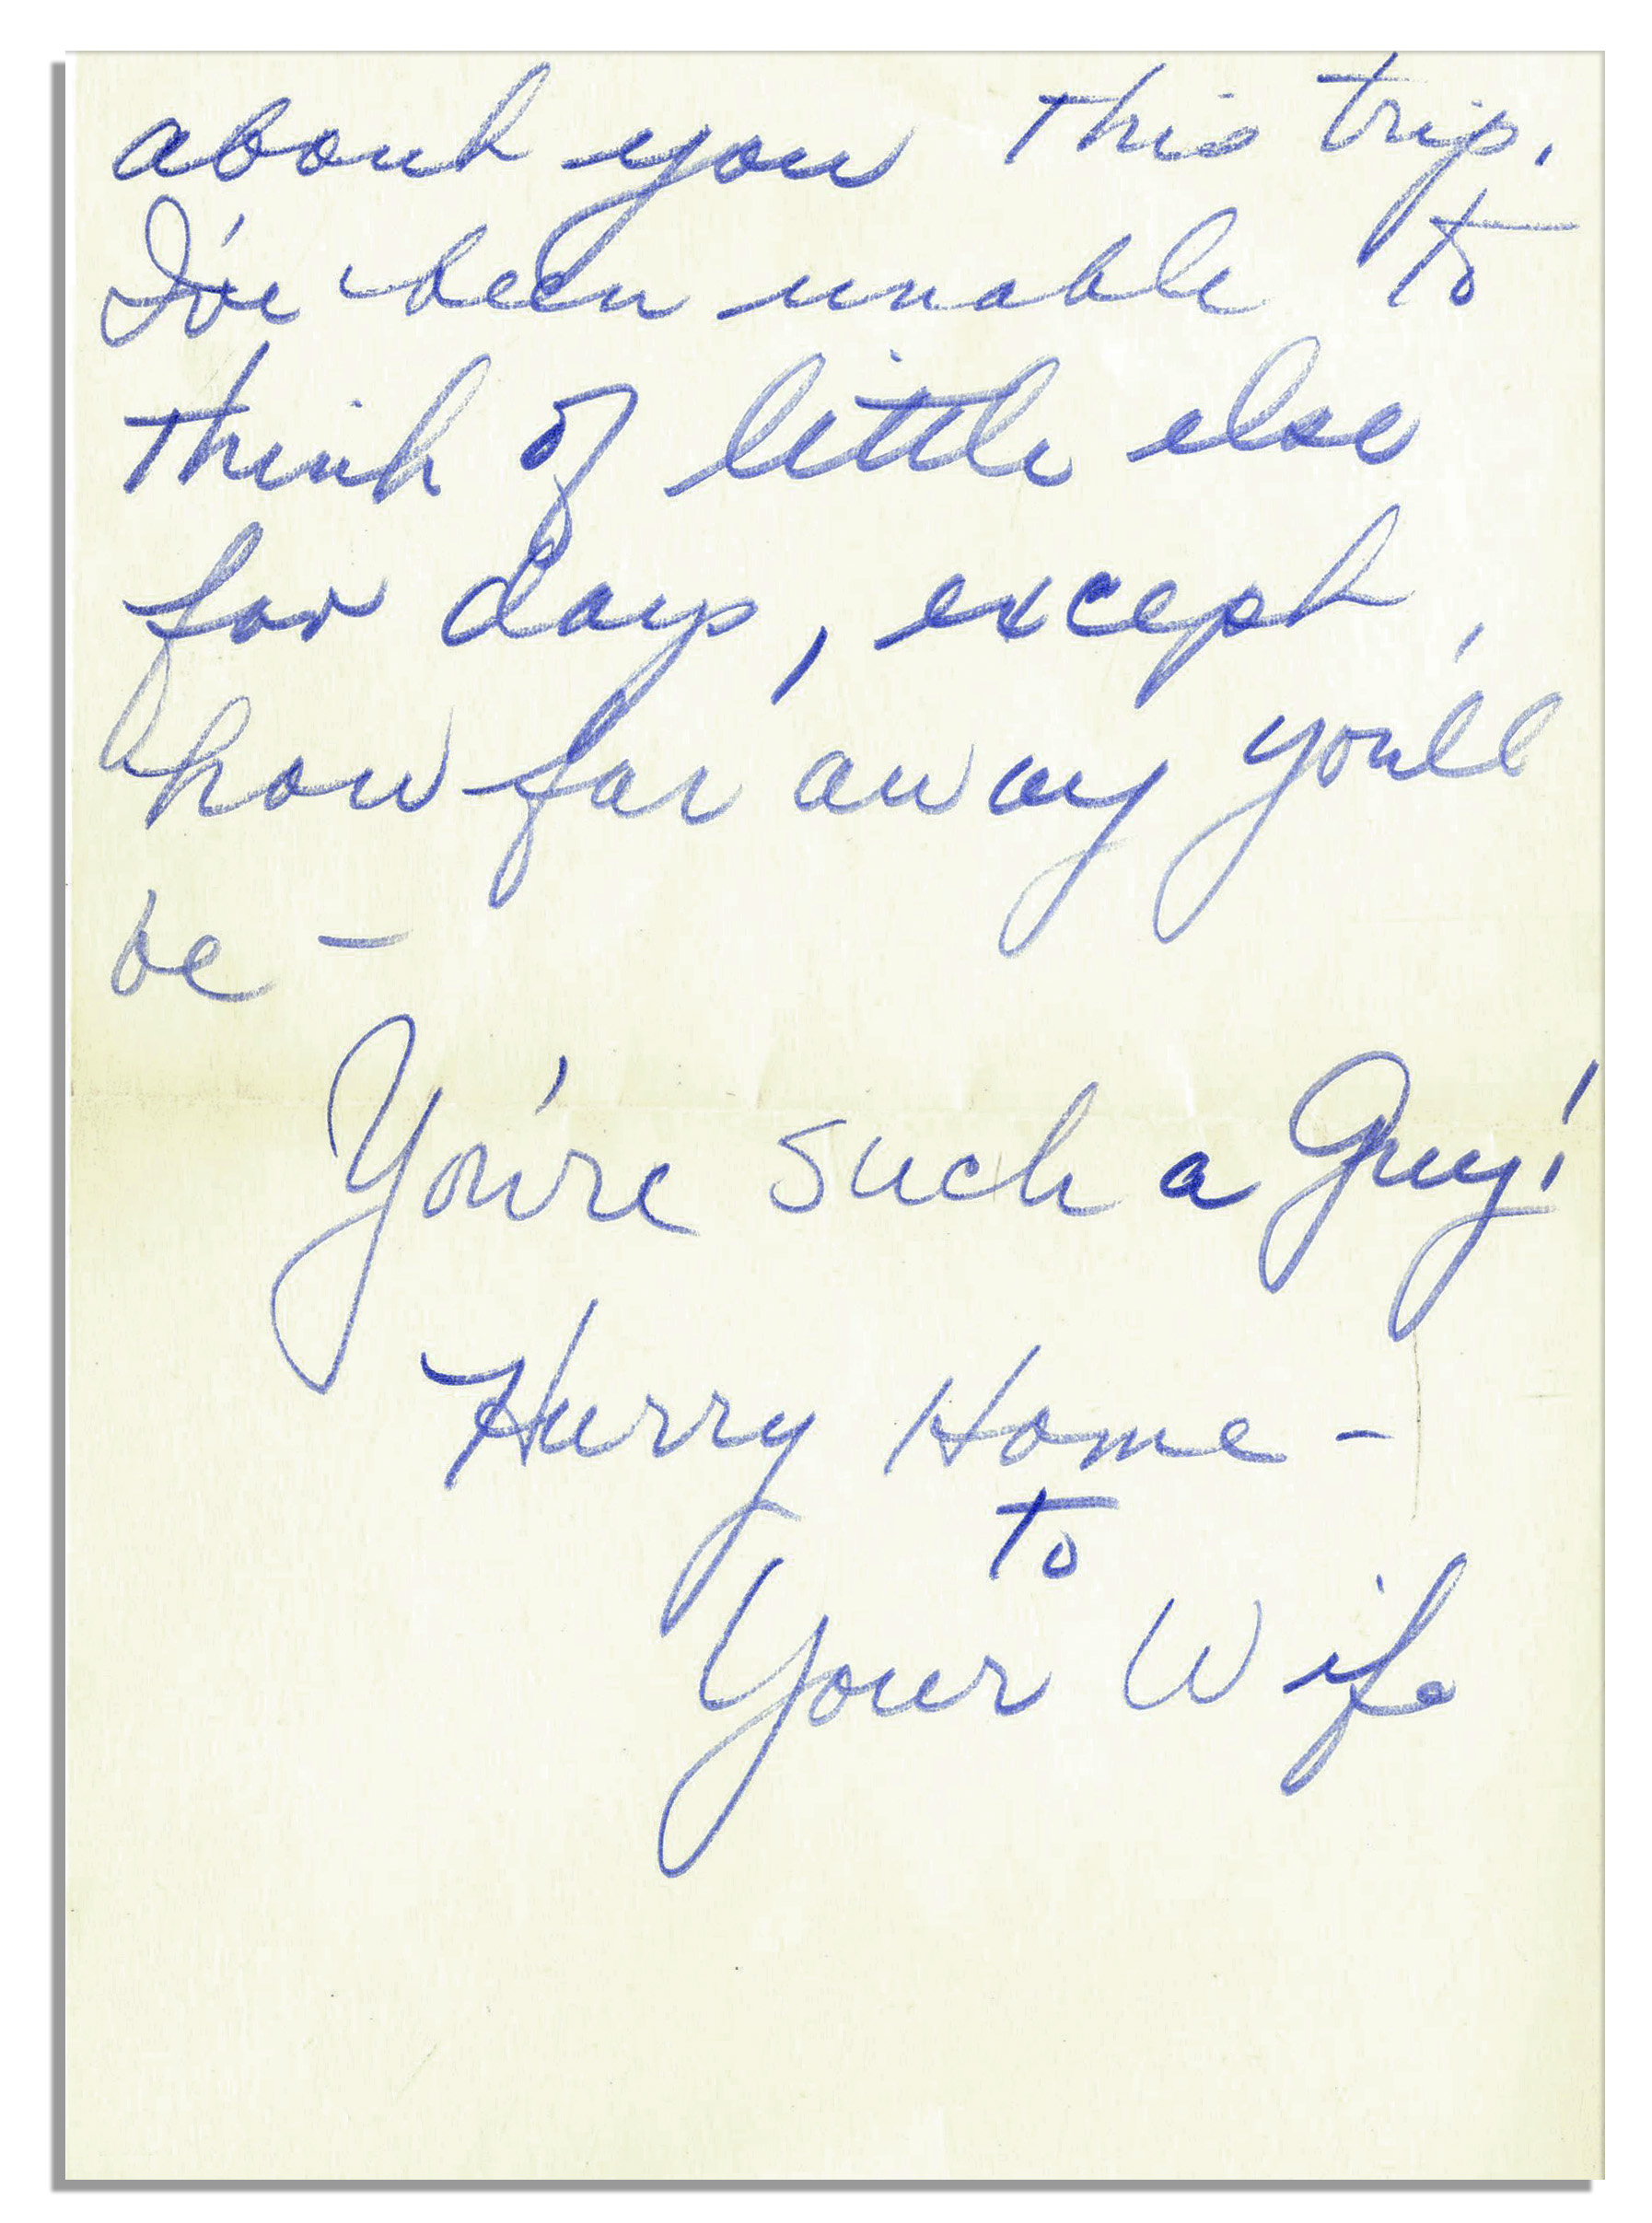 about you this trip.
I've been unable to
think of little else
for days, except
how far away you'll
be —
You're such a Guy!
Hurry Home —
to
Your Wife